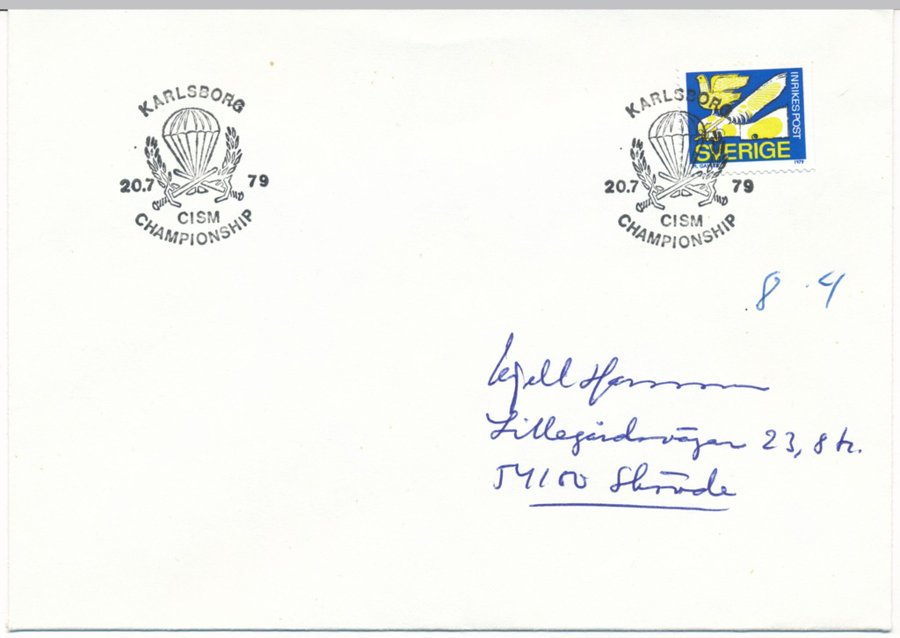 KARLSBORG
20.7 79
CISM
CHAMPIONSHIP
KARLSBORG
20.7 79
CISM
CHAMPIONSHIP
INRIKES POST
SVERIGE
1979
8 4
Kjell Hansson
Lillegårdsvägen 23, 8 tr.
54100 Skövde